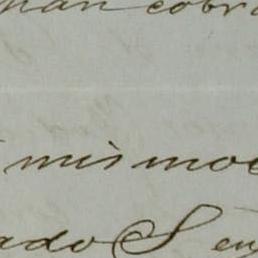 man cobra
mismo
ado S en